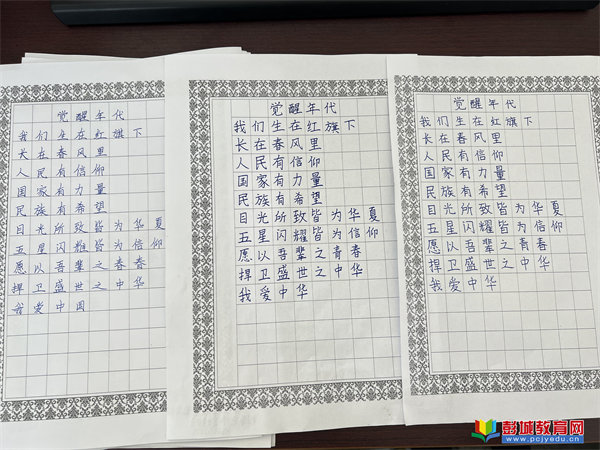 觉醒年代
我们生在红旗下
长在春风里
人民有信仰
国家有力量
民族有希望
目光所致皆为华夏
五星闪耀皆为信仰
愿以吾辈之春春
捍卫盛世之中华
我爱中国
觉醒年代
我们生在红旗下
长在春风里
人民有信仰
国家有力量
民族有希望
目光所致皆为华夏
五星闪耀皆为信仰
愿以吾辈之青春
捍卫盛世之中华
我爱中华
觉醒年代
我们生在红旗下
长在春风里
人民有信仰
国家有力量
民族有希望
目光所致皆为华夏
五星闪耀皆为信仰
愿以吾辈之青春
捍卫盛世之中华
我爱中华
彭城教育网
www.pcjyedu.cn